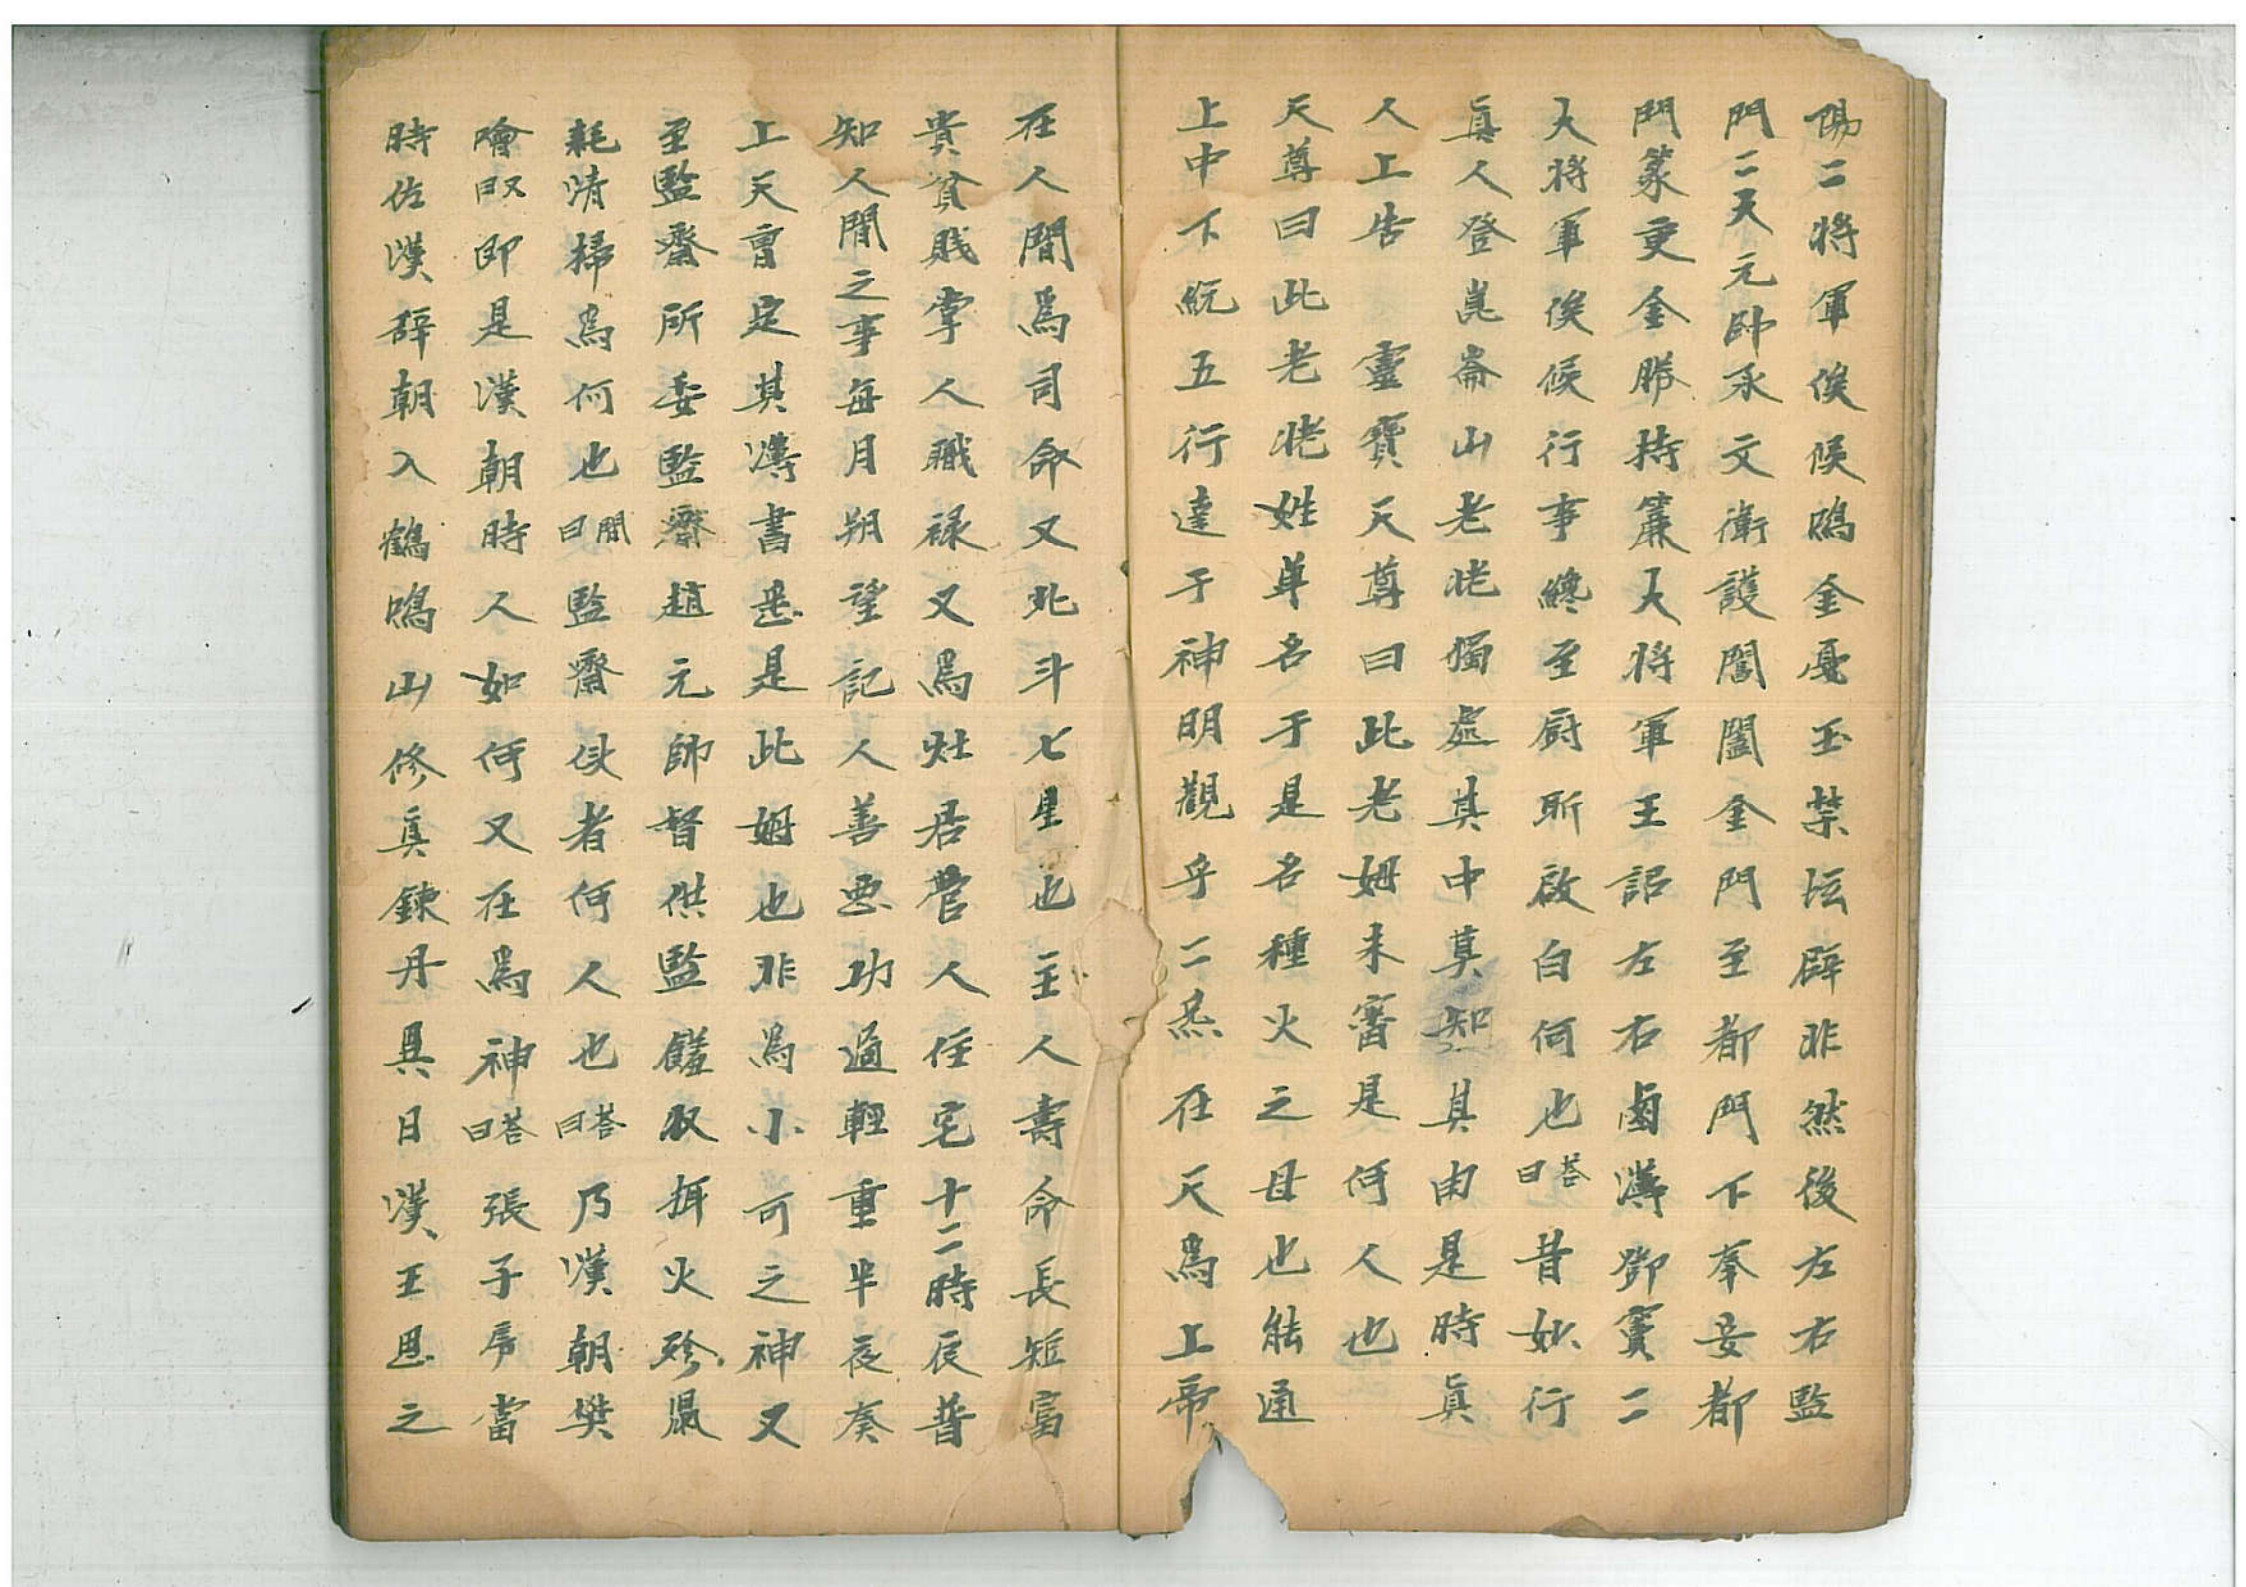 陽二將軍俟候鳴金戞玉禁坛辟非然後左右監
門二天元帥永文衛護閶闔金門至都門下奉妥都
門篆更金勝持簾大將軍王詔左右鹵簿鄧竇二
大將軍俟候行事纔至厨所啟白何也答曰昔妙行
真人登崑崙山老姥獨處其中莫知其由是時真
人上告　靈寶天尊曰此老姆未審是何人也
天尊曰此老姥姓卓名于是名種火之母也能通
上中下統五行達于神明觀乎二炁在天爲上帝
在人間爲司命又北斗七星也主人壽命長短富
貴貧賎掌人職禄又爲灶君管人住宅十二時辰普
知人間之事每月朔望記人善惡功過輕重半夜奏
上天曹定其簿書悉是此姆也非爲小可之神又
至監齋所委監齋趙元帥督供監饈収揖火殄濕
耗清掃爲何也問曰監齋使者何人也答曰乃漢朝樊
噲即是漢朝時人如何又在爲神答曰張子房當
時佐漢辞朝入鶴鳴山修真鍊丹異日漢王思之